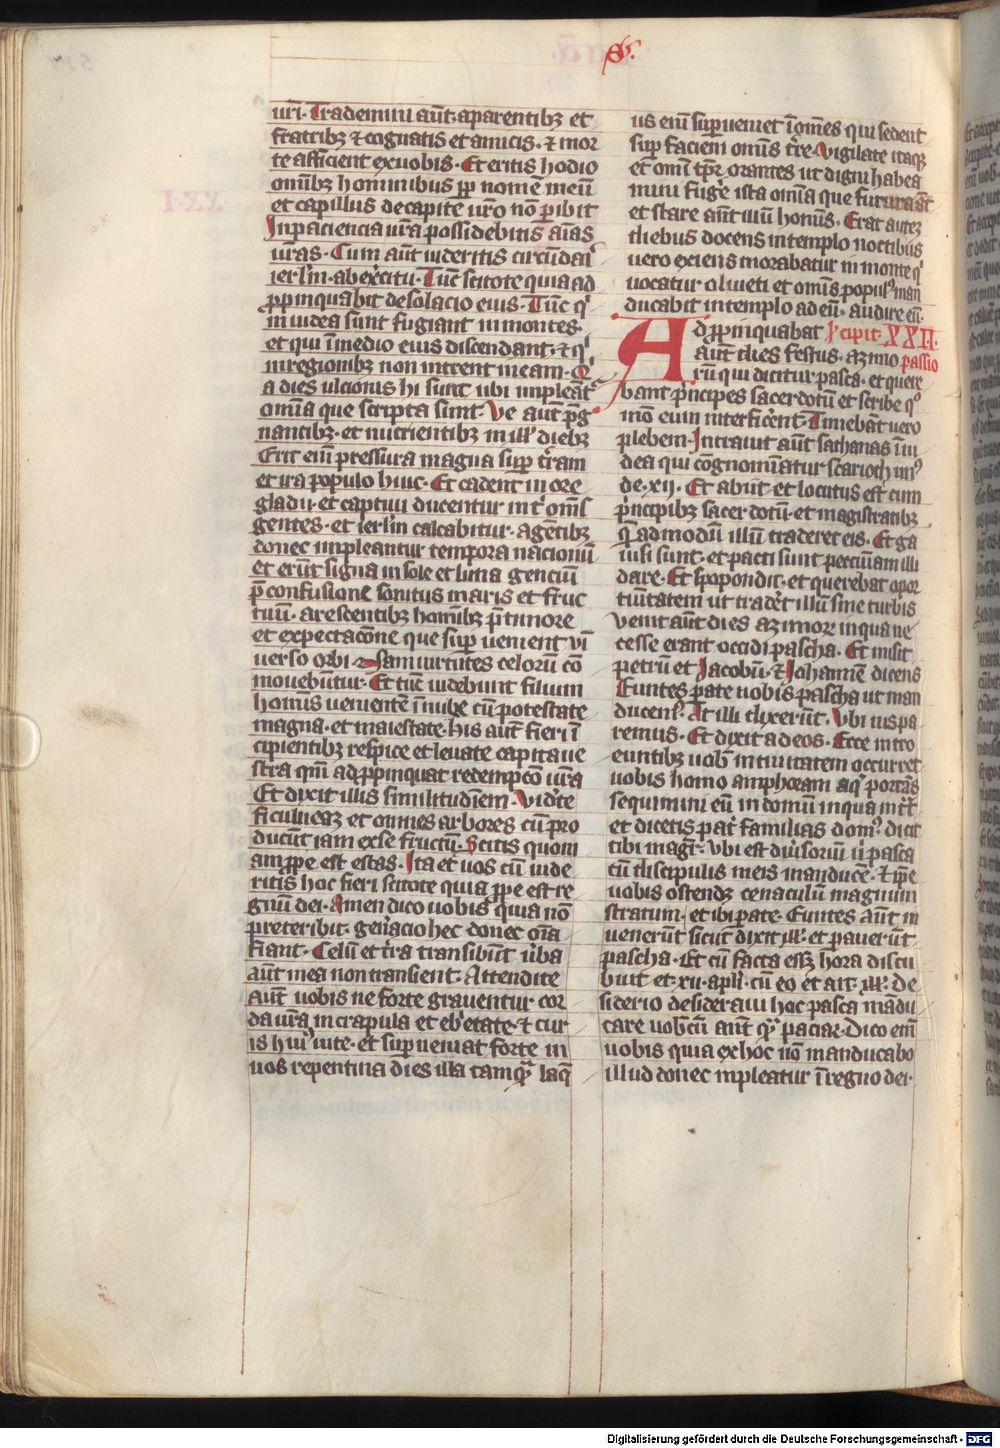 S.
uri. Trademini aut̄. a parentibꝫ et
fr̄atribꝫ ⁊ cognatis et amicis. ⁊ mor
te afficient ex uobis. Et eritis hodio
om̄ibꝫ hominibus ꝓp nomē meū
et capillus de capite ur̄o nō ꝑibit
In paciencia ur̄a possidebitis aīas
ur̄as. Cum aut̄ uideritis circūdari
ierl̄m. ab exercitu. Tūc scitote quia ad
ꝓpinquabit desolacio eius. Tūc qͥ
in iudea sunt fugiant in montes.
et qui ī medio eius discendant. ⁊ qͥ
in regionibꝫ non intrent in eam. Qͥ
a dies ulcionis hi sunt ubi impleāt̄
om̄ia que scripta sunt. Ve aut̄ p̄g
nantibꝫ. et nutrientibꝫ in ill̄ diebꝫ
Erit enī pressura magna suꝑ t̄ram
et ira populo huic. Et cadent in ore
gladii. et captiui ducentur int̄ om̄s
gentes. et ierl̄m calcabitur. a gentibꝫ
donec impleantur tempora nacionū
et erūt signa in sole et luna genciū
p̄ confusione sonitus maris et fluc
tuū. arescentibꝫ hom̄ibꝫ p̄ timore
et expectacōne que suꝑ uenient uī
uerso orbi. Nam uirtutes celorū cō
mouebūtur. Et tūc uidebunt filium
hom̄is uenientē ī nube cū potestate
magna. et maiestate. his aut̄ fieri ī
cipientibꝫ respice et leuate capita ue
stra qm̄ adꝓpinquat redempcō ur̄a
Et dixit illis similitudīem. Videte
ficulneaꝫ et omnes arbores cū pro
ducūt iam ex se fructū. Scitis quoni
am ꝓpe est estas. Ita et uos cū uide
ritis hoc fieri scitote quia ꝓpe est re
gnū dei. Amen dico uobis quia nō
preteribit. gen̄acio hec donec oīa
fiant. Celū et t̄ra transibūt ūba
aūt mea non transient. Attendite
aut̄ uobis ne forte grauentur cor
da ur̄a in crapula et ebͥetate. ⁊ cur
is huiꝰ uite. et suꝑueniat forte in
uos repentina dies illa tamqͣ laq̄
us enī suꝑueniet ī om̄es qui sedent
suꝑ faciem om̄is t̄re. Vigilate itaqꝫ
et omī tp̄r orantes ut digni habea
mini fug̊e ista om̄ia que futura st̄
et stare an̄t filiū hom̄is. Erat autē
diebus docens in templo noctibus
uero exiens morabatur in monte qͥ
uocatur oliueti et om̄is populꝰ man
ducabit in templo ad eū. audire eū.
Adꝓpinquabat Īcipit. XXII.
aut̄ dies festus. azimo passio
rū qui dicitur pasca. et quere
bant p̄ncipes sacerdotū et scribe qͦ
mō eum interficerent. Timebāt uero
plebem. Intrauit aut̄ sathanas ī iu
dea qui cōgnomīatur scarioth unꝰ
de. xii. Et abiit et locutus est cum
p̄ncipibꝫ sacerdotū. et magistratibꝫ
qͣ̄admodū illū traderet eis. Et ga
uisi sunt. et pacti sunt peccuīam illi
dare. Et spopondit. et querebat opor
tuītatem ut tradēt illū sine turbis
Venit aut̄ dies azimor̄ in qua ne
cesse erant occidi pascha. Et misit
petrū et Jacobū. ⁊ Johannē dicens
Euntes ꝑate nobis pascha ut man
ducem̄ꝰ. At illi dixerūt. Vbi uis pa
remus. Et dixit ad eos. Ecce intro
euntibꝫ uob̄ in ciuitatem occurret
uobis homo amphoram aq̄ portās
sequimini eū in domū in qua int̄t
et dicetis pat̄ familias domꝰ. dicit
tibi magr̄. Vbi est diu̇sorium ū pasca
cū discipulis meis manducē. ⁊ ip̄e
uobis ostendet cenaculū magnum
stratum. et ibi ꝑate. Euntes aut̄ in
uenerūt sicut dixit ill̄. et ꝑauerūt
pascha. Et cū facta essꝫ hora discu
biuit et. xii. apl̄i cū eo et ait. ill̄. de
siderio desideraui hoc pasca mādu
care uobcū ant̄ qͣ paciar. Dico enī
uobis quia ex hoc nō manducabo
illud donec inpleatur ī regno dei.
XXI
Digitalisierung gefördert durch die Deutsche Forschungsgemeinschaft - DFG